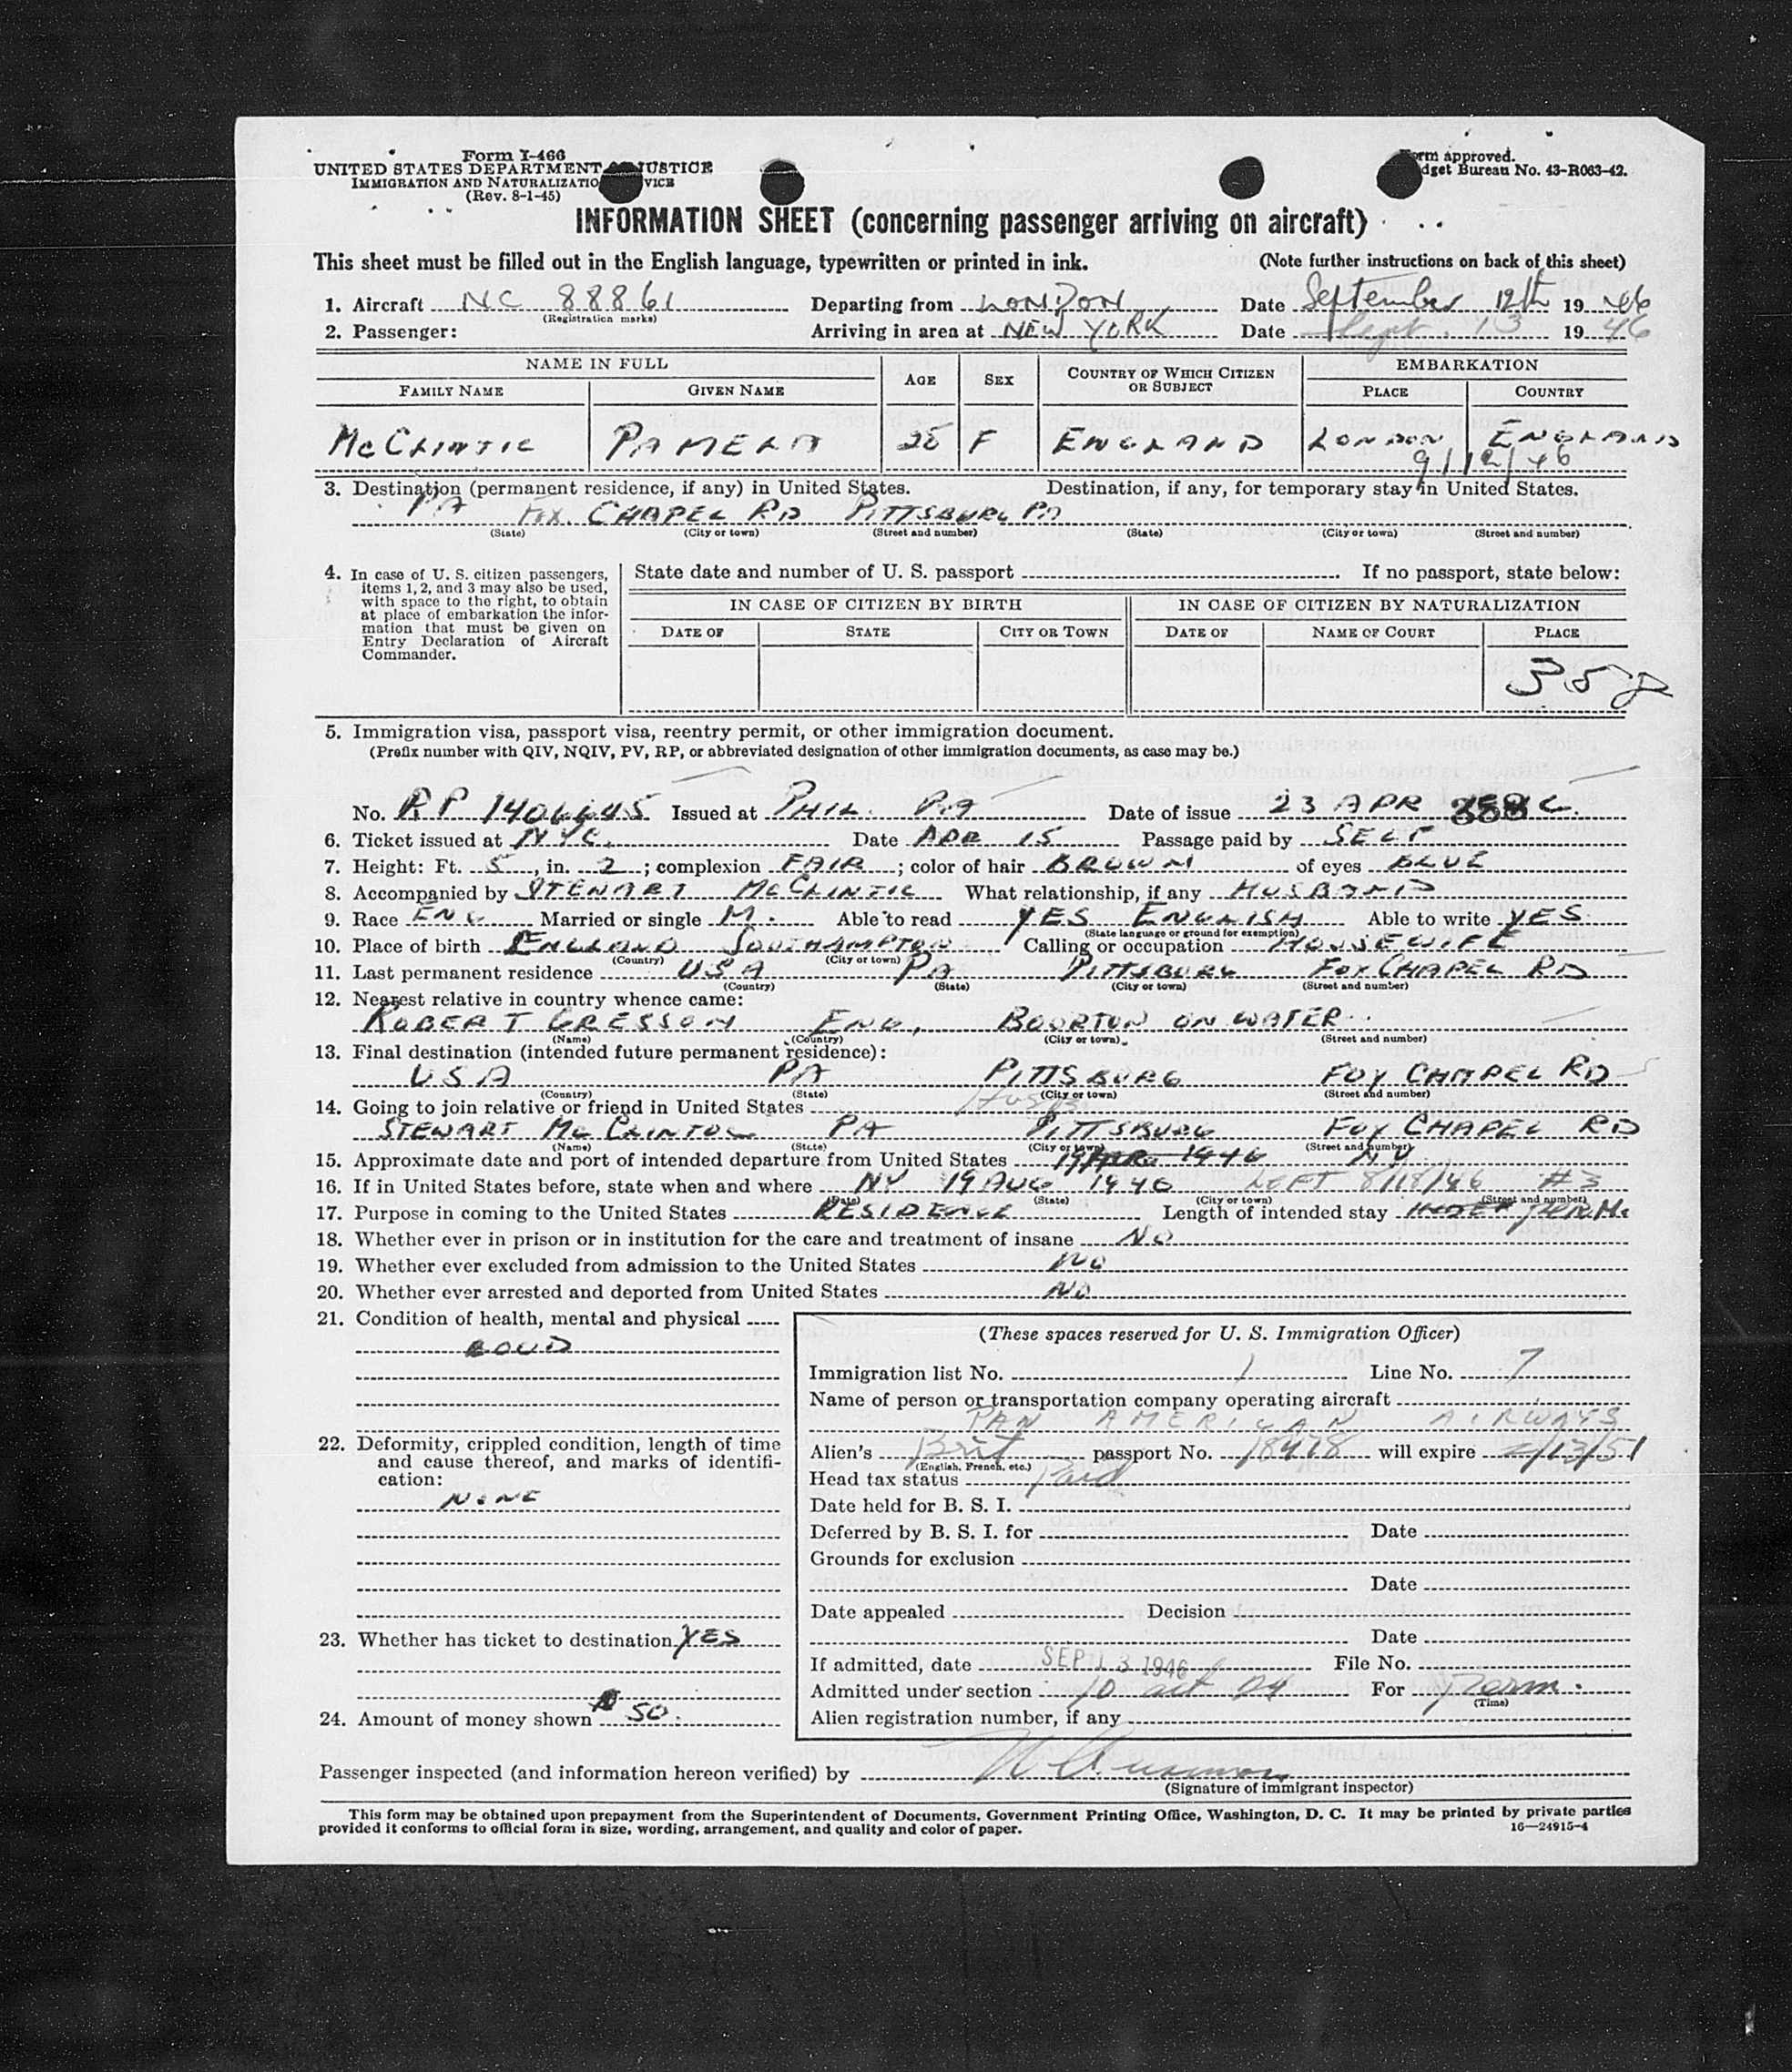 Form I-466
UNITED STATES DEPARTMENT JUSTICE
IMMIGRATION AND NATURALIZATIO VICE
(Rev. 8-1-45)
rm approved.
dget Bureau No. 43-R063-42.
INFORMATION SHEET (concerning passenger arriving on aircraft)
This sheet must be filled out in the English language, typewritten or printed in ink. (Note further instructions on back of this sheet)
1. Aircraft NC 88861 Departing from LONDON Date September 12th 1946
(Registration marks)
2. Passenger: Arriving in area at NEW YORK Date Sept. 13 1946
NAME IN FULL AGE SEX COUNTRY OF WHICH CITIZEN OR SUBJECT EMBARKATION
FAMILY NAME GIVEN NAME PLACE COUNTRY
McCLINTIC PAMELA F ENGLAND LONDON ENGLAND
9/12/46
3. Destination (permanent residence, if any) in United States. Destination, if any, for temporary stay in United States.
PA FOX CHAPEL RD PITTSBURG PA
(State) (City or town) (Street and number) (State) (City or town) (Street and number)
4. In case of U. S. citizen passengers, items 1, 2, and 3 may also be used, with space to the right, to obtain at place of embarkation the information that must be given on Entry Declaration of Aircraft Commander.
State date and number of U. S. passport If no passport, state below:
IN CASE OF CITIZEN BY BIRTH IN CASE OF CITIZEN BY NATURALIZATION
DATE OF STATE CITY OR TOWN DATE OF NAME OF COURT PLACE
5. Immigration visa, passport visa, reentry permit, or other immigration document.
(Prefix number with QIV, NQIV, PV, RP, or abbreviated designation of other immigration documents, as case may be.)
No. RP 1406645 Issued at PHIL. PA Date of issue 23 APR
6. Ticket issued at NYC. Date APR 15 Passage paid by SELF
7. Height: Ft. 5, in. 2; complexion FAIR; color of hair BROWN of eyes BLUE
8. Accompanied by STEWART McCLINTIC What relationship, if any HUSBAND
9. Race ENG Married or single M. Able to read YES ENGLISH Able to write YES
(State language or ground for exemption)
10. Place of birth ENGLAND SOUTHAMPTON Calling or occupation HOUSEWIFE
(Country) (City or town)
11. Last permanent residence USA PA PITTSBURG FOX CHAPEL RD
(Country) (State) (City or town) (Street and number)
12. Nearest relative in country whence came:
ROBERT GRESSON ENG. BOORTON ON WATER
(Name) (Country) (City or town) (Street and number)
13. Final destination (intended future permanent residence):
USA PA PITTSBURG FOX CHAPEL RD
(Country) (State) (City or town) (Street and number)
14. Going to join relative or friend in United States
STEWART McCLINTOC PA PITTSBURG FOX CHAPEL RD
(Name) (State) (City or town) (Street and number)
15. Approximate date and port of intended departure from United States 19 APR 1946 NY
16. If in United States before, state when and where NY 19 AUG 1946 LEFT 8/18/46 #3
(Date) (State) (City or town) (Street and number)
17. Purpose in coming to the United States RESIDENCE Length of intended stay PERM.
18. Whether ever in prison or in institution for the care and treatment of insane NO
19. Whether ever excluded from admission to the United States NO
20. Whether ever arrested and deported from United States NO
21. Condition of health, mental and physical
GOOD
22. Deformity, crippled condition, length of time and cause thereof, and marks of identification:
NONE
23. Whether has ticket to destination YES
24. Amount of money shown 50.
(These spaces reserved for U. S. Immigration Officer)
Immigration list No. 1 Line No. 7
Name of person or transportation company operating aircraft
PAN AMERICAN AIRWAYS
Alien's Brit passport No. 18478 will expire 2/13/51
(English, French, etc.)
Head tax status Paid
Date held for B. S. I.
Deferred by B. S. I. for Date
Grounds for exclusion
Date
Date appealed Decision
Date
If admitted, date SEP 13 1946 File No.
Admitted under section 10 act 24 For Perm.
(Time)
Alien registration number, if any
Passenger inspected (and information hereon verified) by
(Signature of immigrant inspector)
This form may be obtained upon prepayment from the Superintendent of Documents, Government Printing Office, Washington, D. C. It may be printed by private parties
provided it conforms to official form in size, wording, arrangement, and quality and color of paper. 16—24915-4